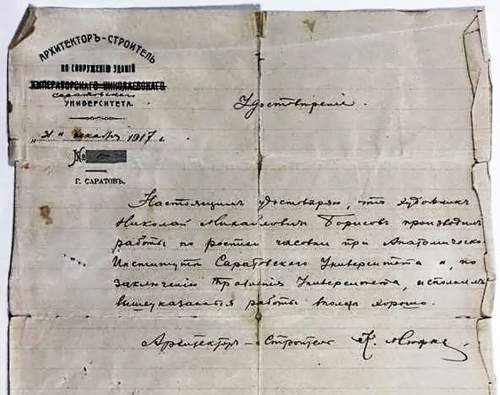 АРХИТЕКТОРЪ-СТРОИТЕЛЬ
ПО СООРУЖЕНІЮ ЗДАНІЙ
ИМПЕРАТОРСКАГО НИКОЛАЕВСКАГО
Саратовскаго
УНИВЕРСИТЕТА.
Удостовѣреніе.
„21" декабря 1917 г.
№
Г. САРАТОВЪ.
Настоящимъ удостовѣряю, что художникъ
Николай Михайловичъ Борисовъ производилъ
работы по росписи часовни при Анатомическо
Института Саратовскаго Университета и, по
заключенію Правленія Университета, исполнилъ
вышеуказанныя работы вполнѣ хорошо.
Архитекторъ-Строитель К. Мюфке